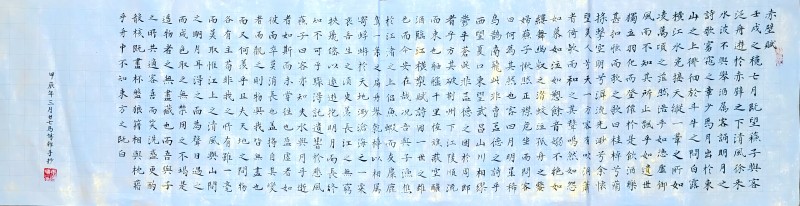 赤壁賦
壬戌之穐七月既望蘇子與客
泛舟遊於赤辟之下清風徐来
水波不興舉酒屬客誦明月之
詩歌窈窕之章少焉月出於東
山之上徘徊於斗牛之間白露
横江水光接天縱一葦之所如
凌萬頃之茫然浩乎如馮虚御
風而不知其所止飘乎如遺世
獨立羽化而登僊於是飲酒樂
甚扣舷而歌之歌曰桂棹兮蘭
槳擊空明兮溯流光渺兮余懷
望美人兮天一方客有吹洞簫
者倚歌而和之其聲嗚然如怨
如慕如泣如愬餘音裊不絶如
縷舞幽壑之潛蛟泣孤舟之嫠
婦蘇子愀然正襟危坐而問客
曰何為其然也客曰月明星稀
烏鵲南飛此非孟德之詩乎
西望夏口東望武昌山川相繆
鬱乎蒼此非孟德之困於周郎
者乎方其破荆州下江陵順流
而東也舳艫千里旌旗蔽空釃
酒臨江横槊賦詩固一世之雄
也而今安在哉况吾與子漁樵
於江渚之上侣魚蝦而友麋鹿
駕一葉之扁舟舉匏樽以相屬
寄蜉蝣於天地渺滄海之一粟
哀吾生之須臾羡長江之無窮
挟飛僊以遨遊抱明月而長終
知不可乎驟得託遺響於悲風
蘇子曰客亦知夫水與月乎逝
者如斯而未嘗往也盈虚者如
彼而卒莫消長也盖将自其變
者而觀之則物與我皆無盡也
而又何羡乎且夫天地之間物
各有主苟非我之所有雖一毫
而莫取惟江上之清風與山間
之明月耳得之而為聲目遇之
而成色取之無禁用之不竭是
造物者之無盡藏也而吾與子
之所共適客喜而笑洗盏更酌
肴核既盡杯盤狼籍相與枕藉
乎舟中不知東方之既白
甲辰年三月廿七手抄